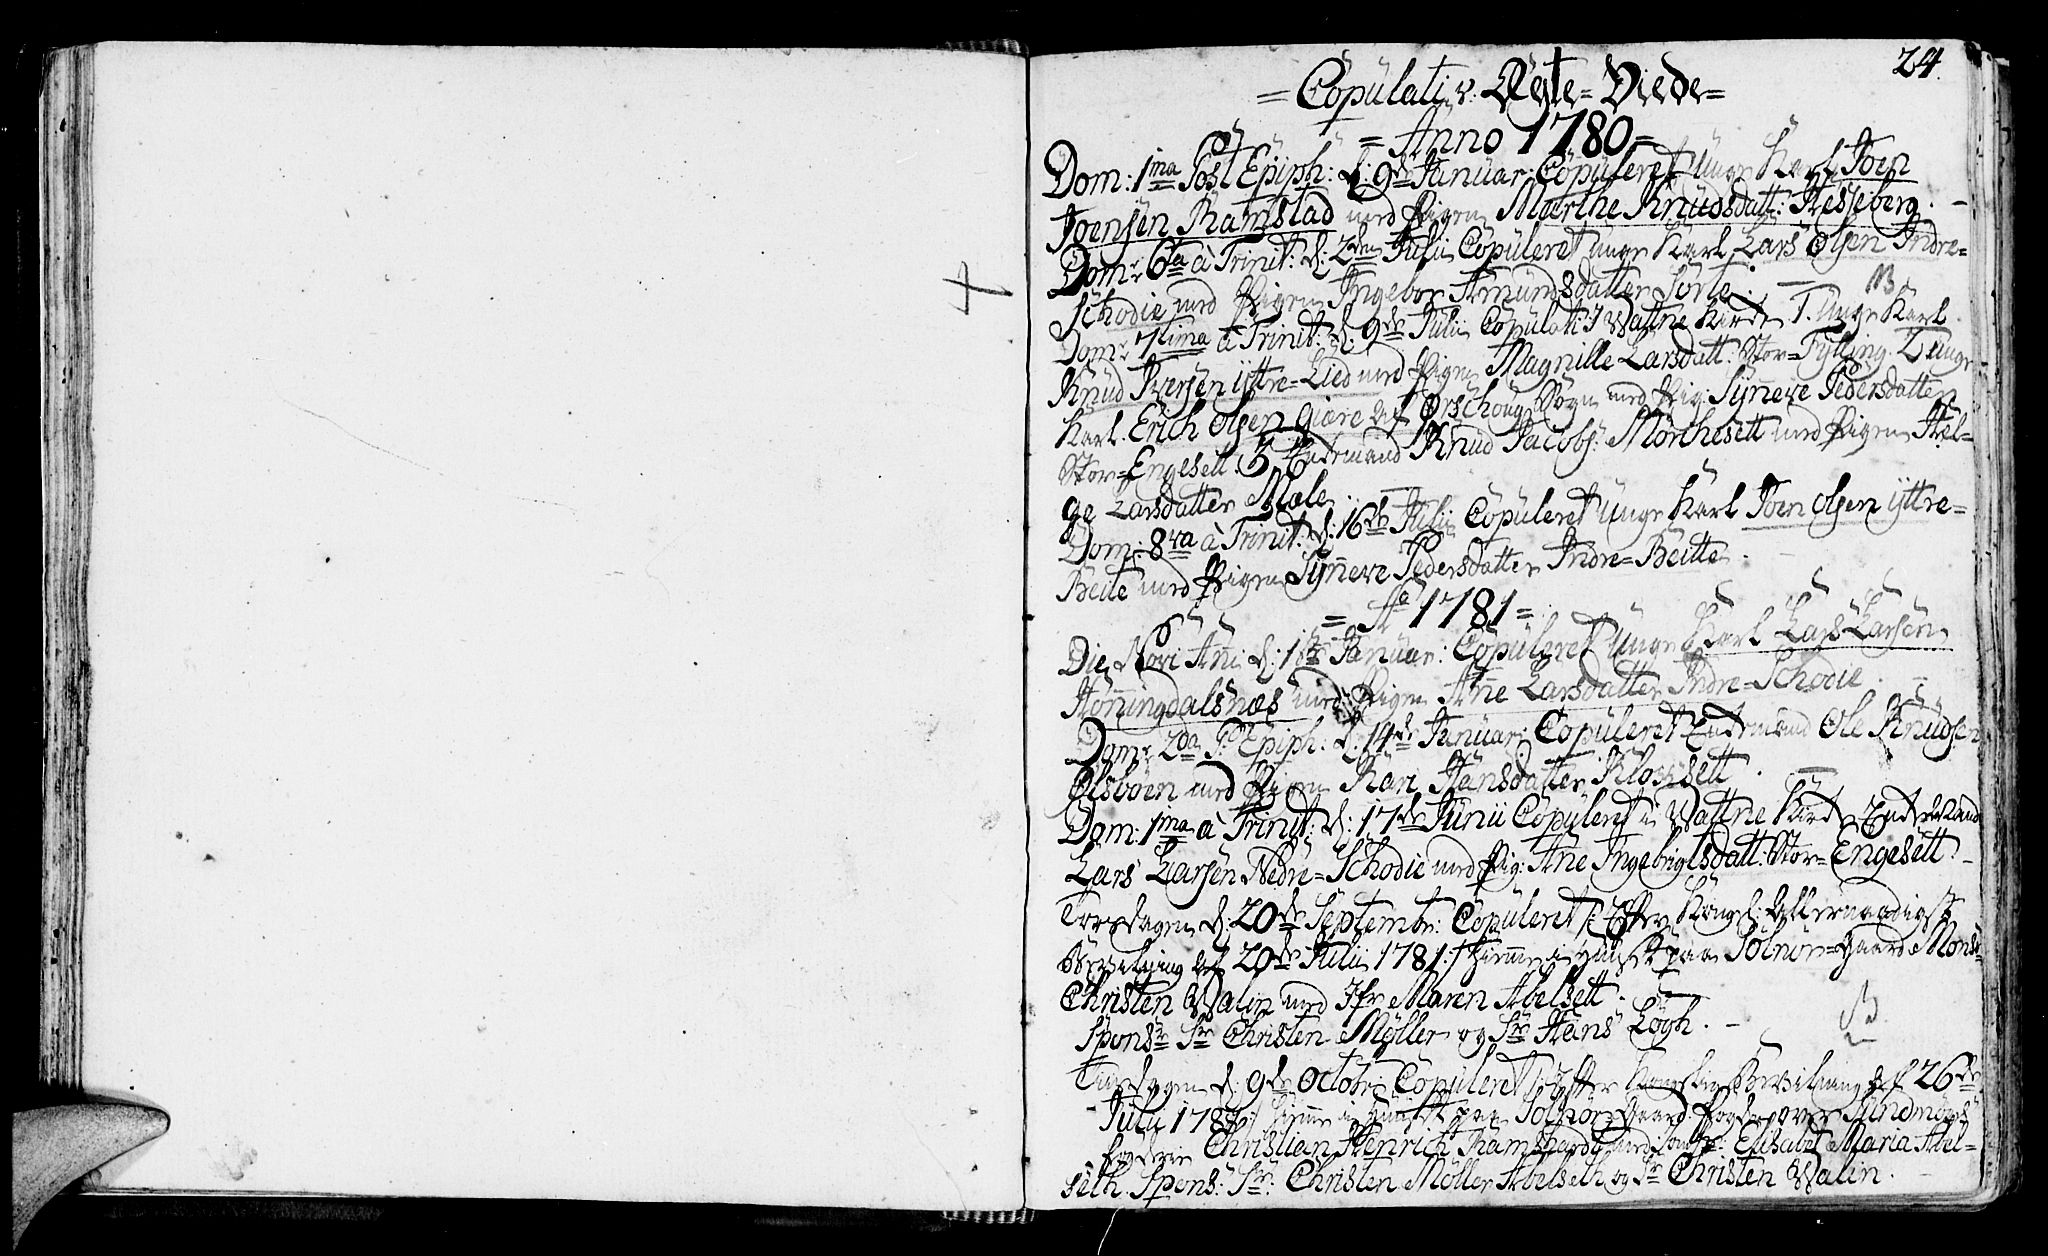 24.
= Copulati v: Ægte=Viede=
= Anno 1780 =
Dom: 1ma Post Epiph: d: 9de Januar: Copuleret unge Karl Joen
Joensen Ramstad med Pigen Marthe Knudsdatt: Hesseberg. -
Domr 6ta à Trinit: d: 2den Julii Copuleret unge Karl Lars Olsen Indre=
Schodie med Pigen Ingebor Amundsdatter Sorte. -
Domr 7tima à Trinit: d: 9de Julii Copulati i Vattne Kirke 1. Unge Karl
Knud Iversen yttre=Lied med Pigen Magnille Larsdatt: Stor=Fylling. 2 unge
Karl Erich Olsen Giære af Ørschoug Sogn med Pig: Synneve Pedersdatter
Stor=Engesett. Enkemand Knud Jacobs: Mørchesett med Pigen Hel=
ge Larsdatter Mæle.
Dom: 8va à Trinit: d: 16de Julii Copuleret unge Karl Joen Olsen yttre=
Beite med Pigen Synneve Pedersdatter Indre=Beitte.
= Ao 1781 =
Die Novi Anni d: 1ste Januar: Copuleret unge Karl Lars Larsen
Hønningdalsnæs med Pigen Anne Larsdatter Indre=Schodie. -
Domr 2da P: Epiph: d: 14de Januar: Copuleret Enkemand Ole Knudsen
Olsbøen med Pigen Kari Hansdatter Klocksett. -
Dom: 1ma à Trinit: d: 17de Junii Copuleret i Vattne Kirke Enkemand
Lars Larsen Nedre=Schodie med Pig: Ane Ingebrigtsdatt: Stor=Engesett. -
Torsdagen d: 20de Septembr: Copuleret /: Efter Kongel: Allernaadigst
Bevilning af 20de Julii 1781 :/ hiemme i Huuset paa Solnør=Gaard Monsr
Christen Walin med Jfr Maren Abelsett.
Sponsr Sr Christen Møller og Sr Hans Løgh. -
Tirsdagen d: 9de Octobr Copuleret /: Efter Kongelig Bevilning af 26de
Julii 1781 :/ hiemme i Huuset paa Solnør Gaard Fogden over Sundmørs
Fogderie Christian Henrich Ramshardt med Jomfr: Elisabet Maria Abel=
seth. Spons: Sr. Christen Møller Abelseth og Sr Christen Walin.